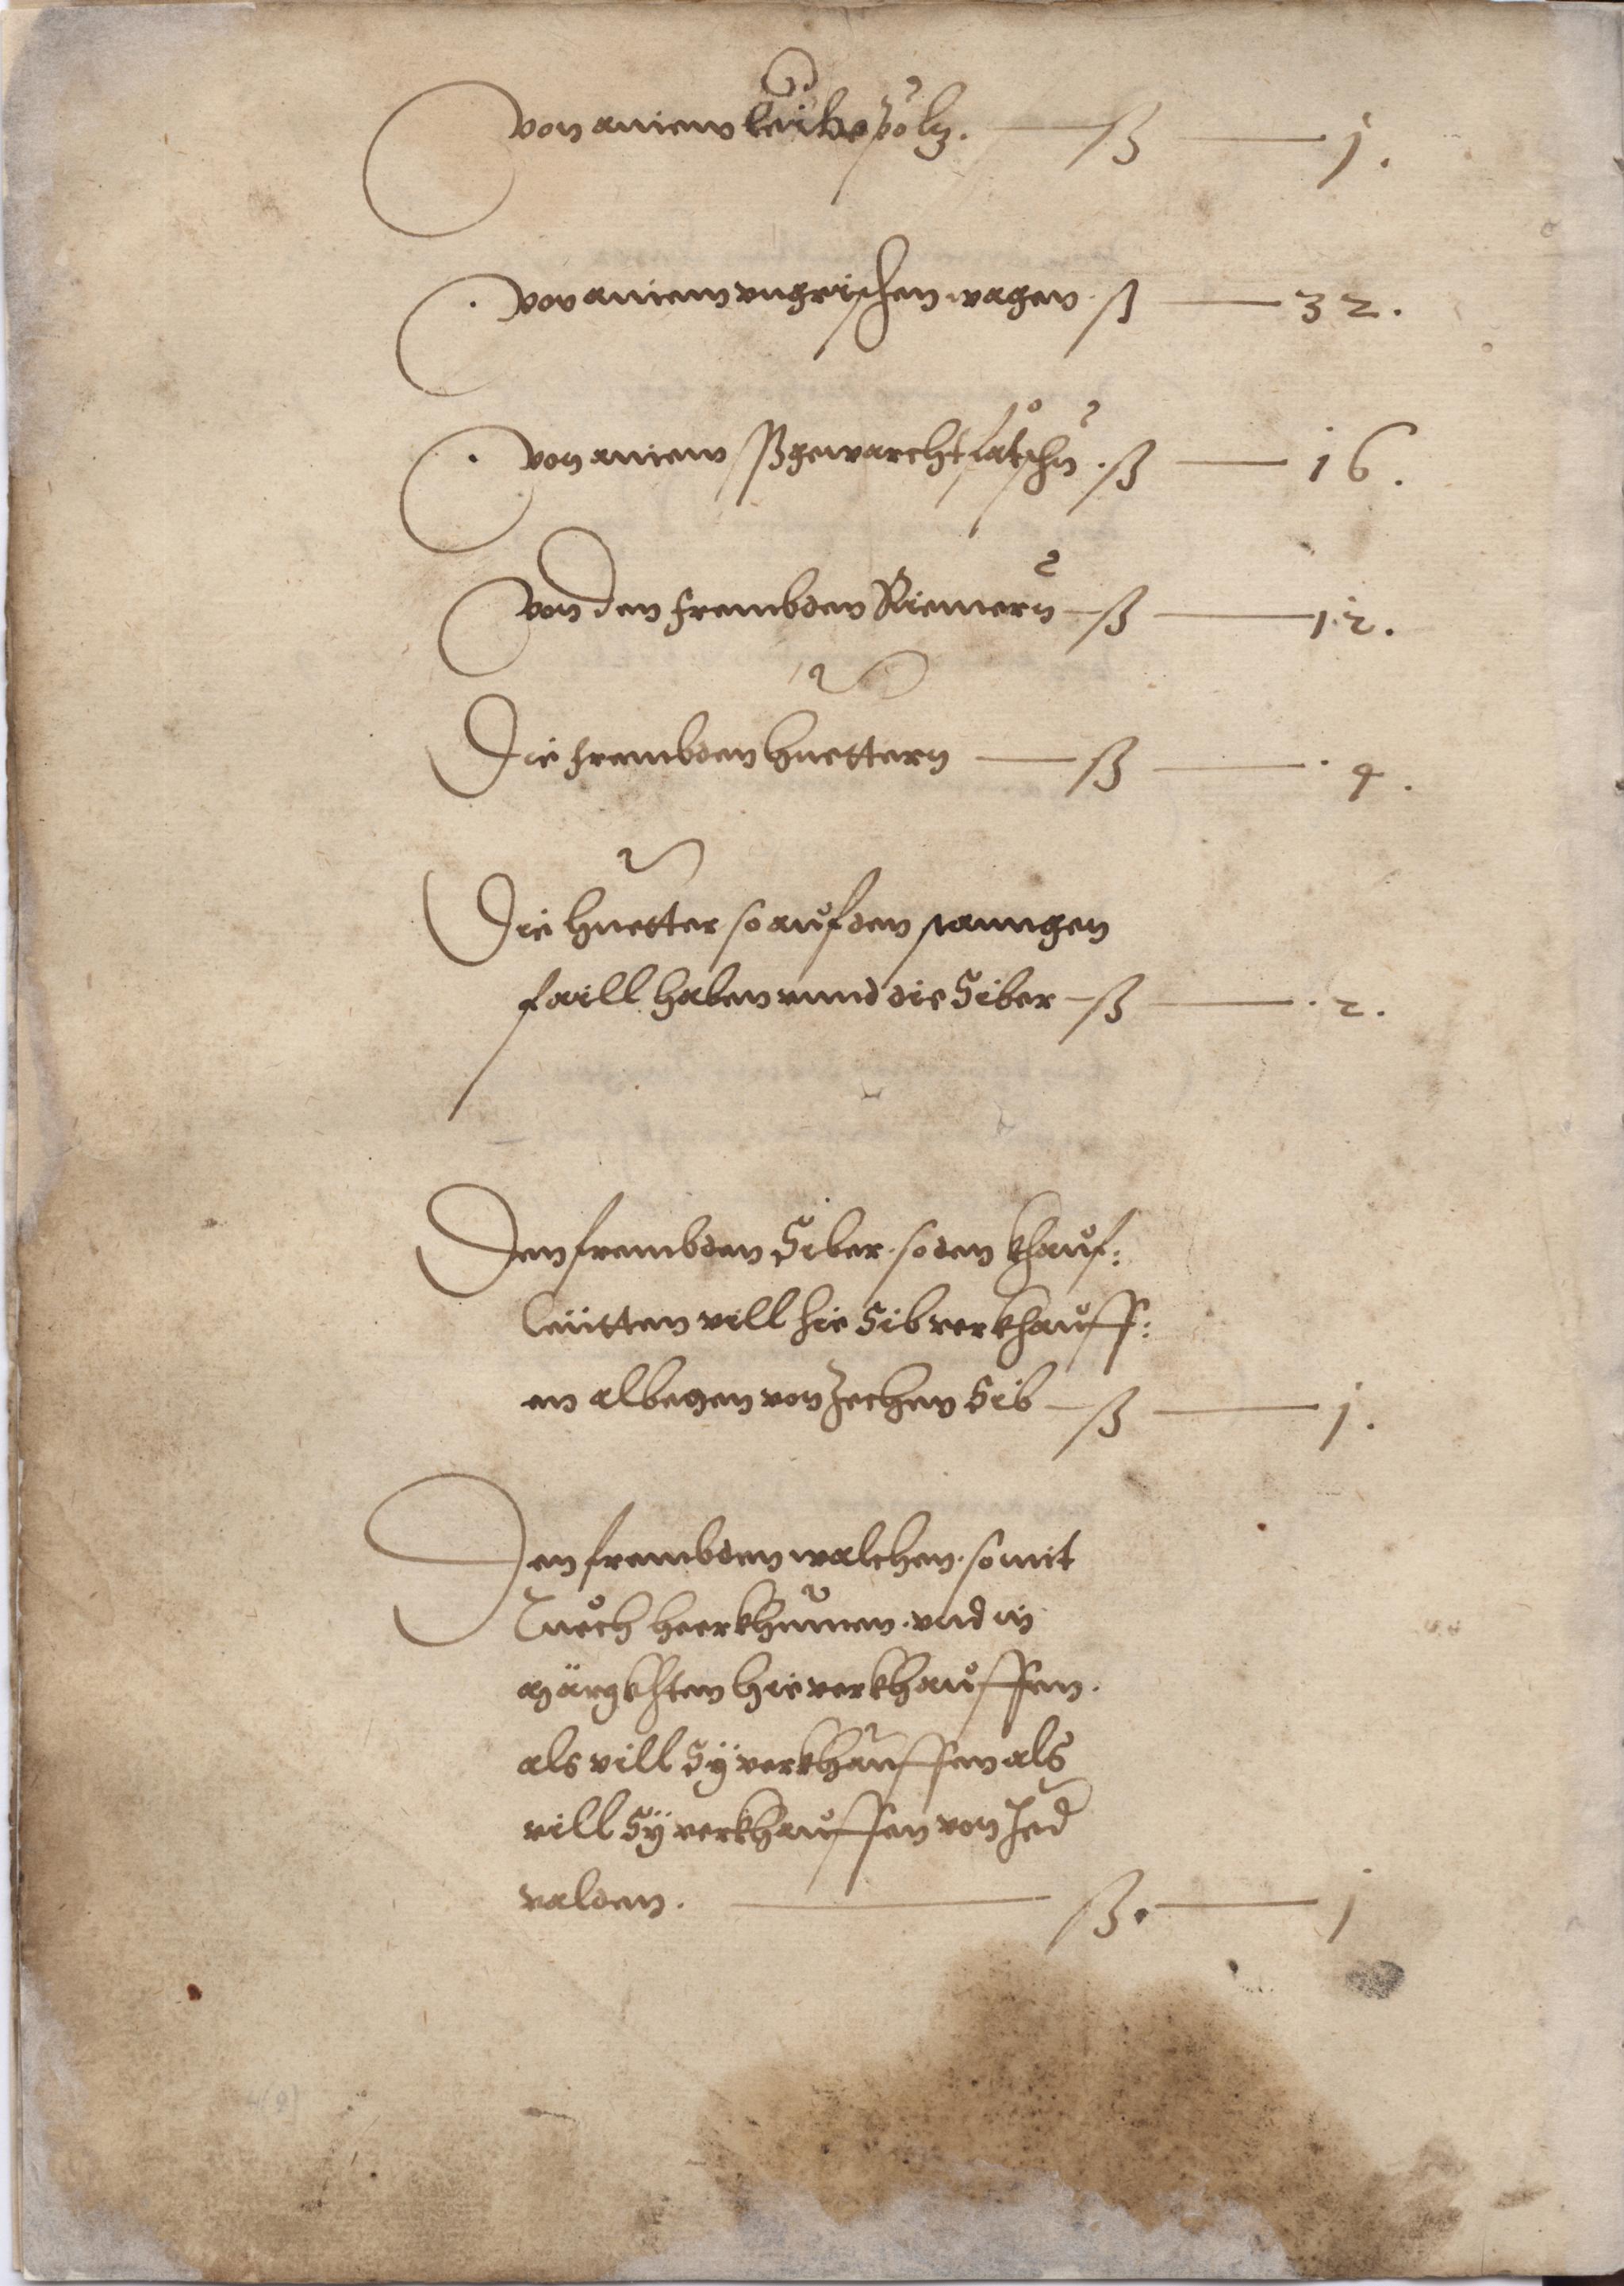 Von ainem leibspölz. — ß — 1.
Von ainem vngrischen wagen. ß — 32.
Von ainem ß — 16.
Von den frembden Riemern — ß — 12.
Die frembden huettern — ß — 4.
Die huetter so auf den stanngen
faill haben vnnd die Siber — ß — 2.
Den frembden Siber so den khauf:
leütten vill hie Sib verkhauff:
en albegen von Zechen Sib — ß — 1.
Den frembden walchen so mit
Tuech heerkhumen vnd in
märgkhten hie verkhauffen.
als vill Sÿ verkhauffen als
vill Sÿ verkhauffen von Jed
valden. — ß. — 1